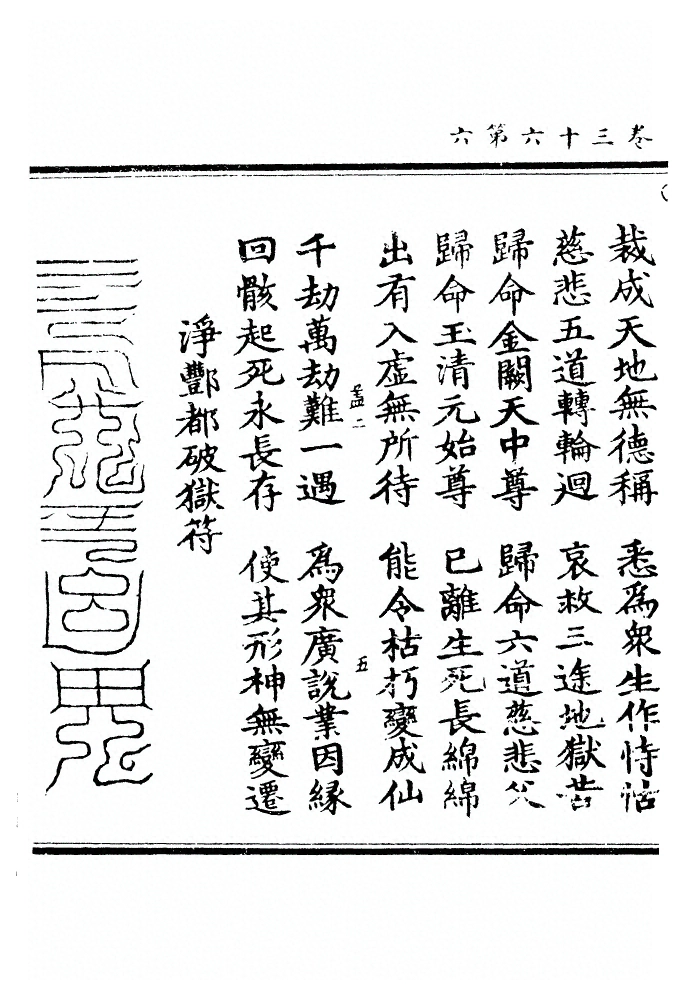 卷三十六第六
裁成天地無德稱　悉爲衆生作恃怙
慈悲五道轉輪迴　哀救三途地獄苦
歸命金闕天中尊　歸命六道慈悲父
歸命玉清元始尊　已離生死長綿綿
出有入虛無所待　能令枯朽變成仙
二　五
千劫萬劫難一遇　爲衆廣說業因緣
回骸起死永長存　使其形神無變遷
淨酆都破獄符